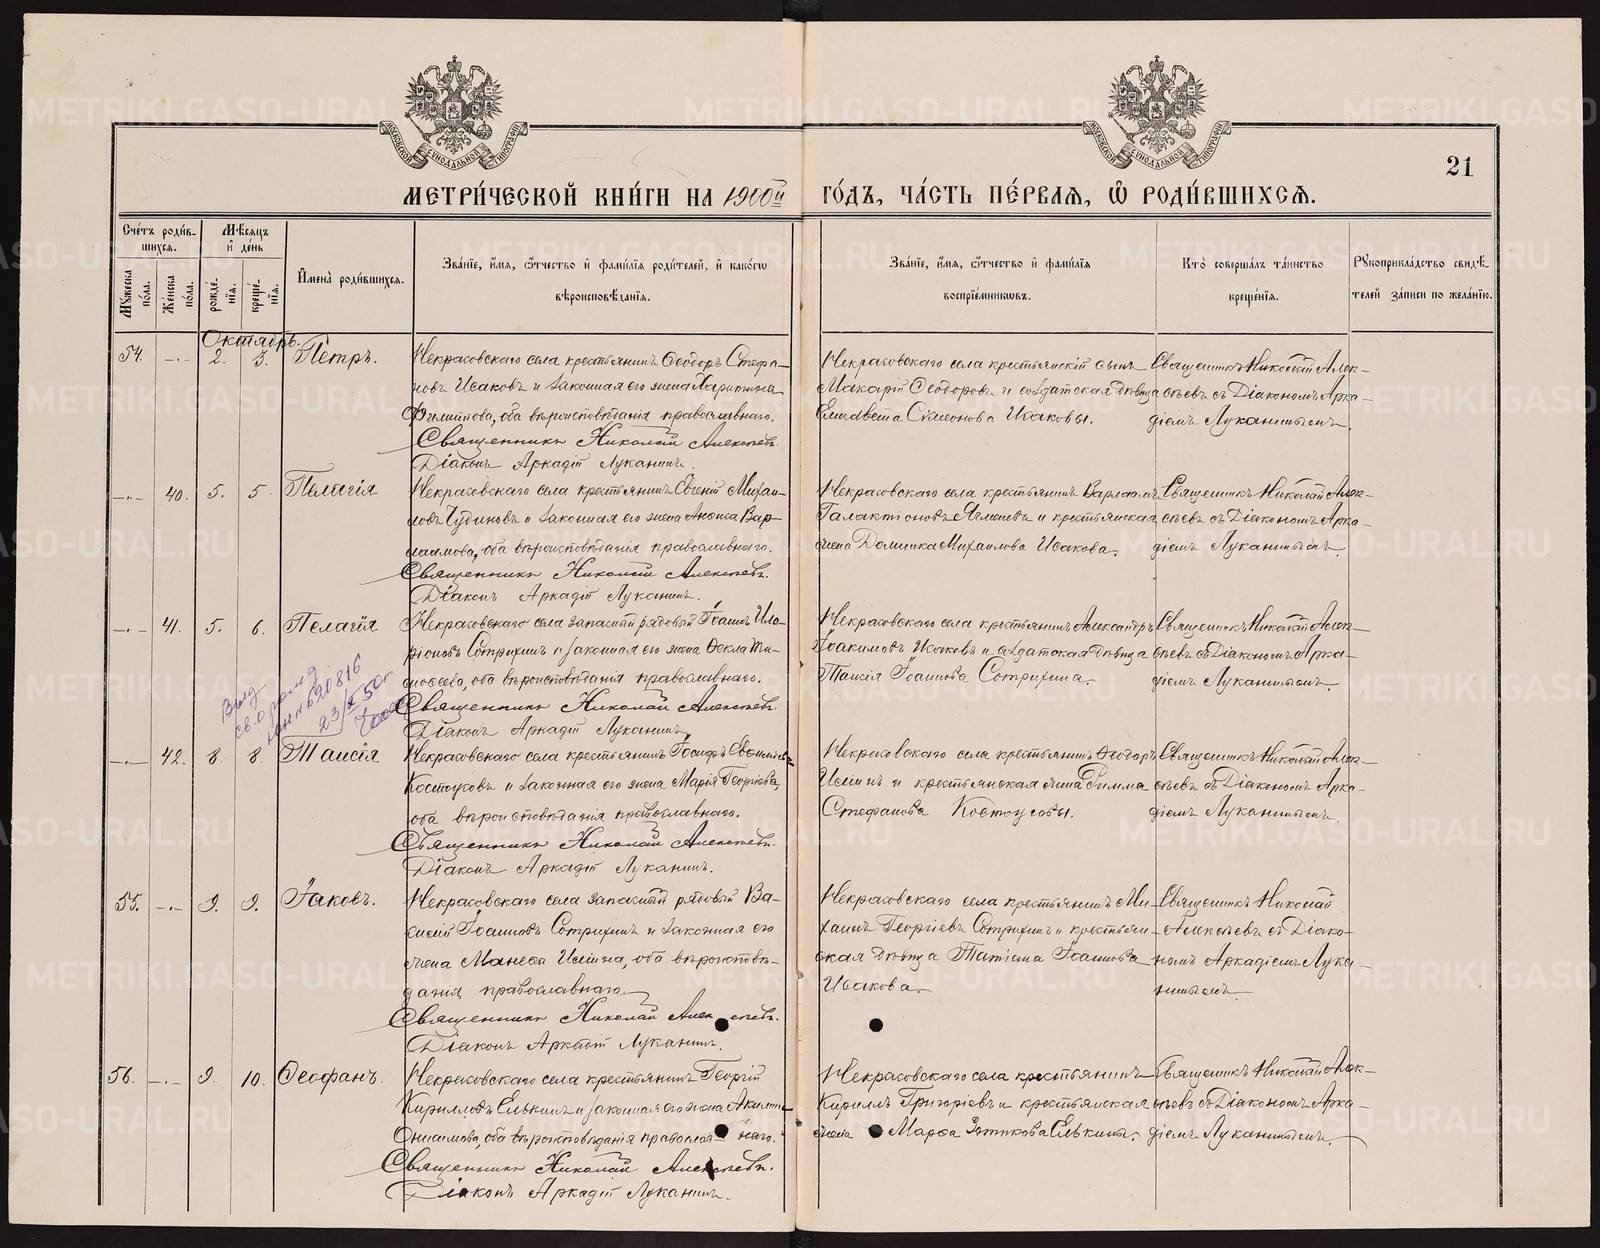 МЕТРИ́ЧЕСКОЙ КНИ́ГИ НА 1900й ГО́ДЪ, ЧА́СТЬ ПЕ́РВАЯ, Ѡ҆ РОДИ́ВШИХСЯ.
21
МОСКОВСКОЙ СѴНОДАЛЬНОЙ ТИПОГРАФІИ
МОСКОВСКОЙ СѴНОДАЛЬНОЙ ТИПОГРАФІИ
Сче́тъ роди́вшихся.
Мѣ́сяцъ и҆ де́нь
Мꙋ́жеска по́ла.
Же́нска по́ла.
рожде́нїя.
креще́нїя.
И҆мена̀ роди́вшихся.
Зва́нїе, и҆́мя, ѻ҆́тчество и҆ фами́лїя роди́телей, и҆ како́гѡ
вѣроисповѣ́данїя.
Зва́нїе, и҆́мя, ѻ҆́тчество и҆ фами́лїя
воспрїе́мникѡвъ.
Кто̀ соверша́лъ та́инство
креще́нїя.
Рꙋкоприкла́дство свидѣ́телей за́писи по жела́нїю.
Октябрь.
54. -„- 2. 3. Петръ.
Некрасовскаго села крестьянинъ Ѳеодоръ Стефа-
новъ Исаковъ и законная его жена Харитина
Филиппова, оба вѣроисповѣданія православнаго.
Священникъ Николай Алексѣевъ.
Діаконъ Аркадій Луканинъ.
Некрасовскаго села крестьянскій сынъ
Макарій Ѳеодоровъ и солдатская дѣвица
Елисавета Симеонова Исаковы.
Священникъ Николай Алек-
сѣевъ съ Діакономъ Арка-
діемъ Луканинымъ.
-„- 40. 5. 5. Пелагія
Некрасовскаго села крестьянинъ Евгеній Михаи-
ловъ Чудиновъ и законная его жена Анѳиса Вар-
лаамова, оба вѣроисповѣданія православнаго.
Священникъ Николай Алексѣевъ.
Діаконъ Аркадій Луканинъ.
Некрасовскаго села крестьянинъ Варлаамъ
Галактіоновъ и крестьянская
жена Домника Михаилова Исакова.
Священникъ Николай Алек-
сѣевъ съ Діакономъ Арка-
діемъ Луканинымъ.
-„- 41. 5. 6. Пелагія
Некрасовскаго села запасный рядовый Іоаннъ Ила-
ріоновъ Сотрихинъ и законная его жена Ѳекла Ти-
моѳеева, оба вѣроисповѣданія православнаго.
Священникъ Николай Алексѣевъ.
Діаконъ Аркадій Луканинъ.
Некрасовскаго села крестьянинъ Александръ
Іоакимовъ Исаковъ и солдатская дѣвица
Таисія Іоаннова Сотрихина.
Священникъ Николай Алек-
сѣевъ съ Діакономъ Арка-
діемъ Луканинымъ.
Выд.
св. о рожд
№ 690816
23/X 50 г
-„- 42. 8. 8. Таисія
Некрасовскаго села крестьянинъ Іосифъ
Костоусовъ и законная его жена Марія Георгіева,
оба вѣроисповѣданія православнаго.
Священникъ Николай Алексѣевъ.
Діаконъ Аркадій Луканинъ.
Некрасовскаго села крестьянинъ Ѳеодоръ
и крестьянская жена Римма
Стефанова Костоусовы.
Священникъ Николай Алек-
сѣевъ съ Діакономъ Арка-
діемъ Луканинымъ.
55. -„- 9. 9. Іаковъ.
Некрасовскаго села запасный рядовый Ва-
силій Іоанновъ Сотрихинъ и законная его
жена Манеѳа Ильина, оба вѣроисповѣ-
данія православнаго.
Священникъ Николай Алексѣевъ.
Діаконъ Аркадій Луканинъ.
Некрасовскаго села крестьянинъ Ми-
хаилъ Георгіевъ Сотрихинъ и крестьян-
ская дѣвица Татіана Іоаннова
Исакова.
Священникъ Николай
Алексѣевъ съ Діако-
номъ Аркадіемъ Лука-
нинымъ.
56. -„- 9. 10. Ѳеофанъ.
Некрасовскаго села крестьянинъ Георгій
Кирилловъ Елькинъ и законная его жена Акилина
Онисимова, оба вѣроисповѣданія православнаго.
Священникъ Николай Алексѣевъ.
Діаконъ Аркадій Луканинъ.
Некрасовскаго села крестьянинъ
Кириллъ Григоріевъ и крестьянская
жена Марѳа Елькины.
Священникъ Николай Алек-
сѣевъ съ Діакономъ Арка-
діемъ Луканинымъ.
METRIKI.GASO-URAL.RU